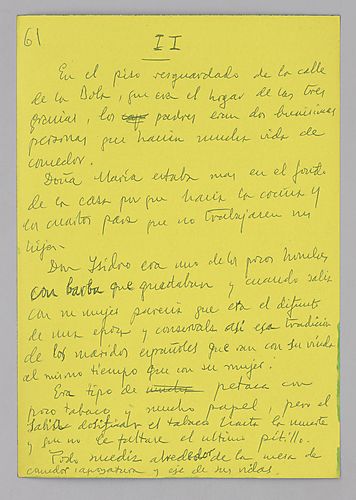 61
II
En el piso resguardado de la calle
de la Bola, que era el hogar de las tres
gracias, los padres eran dos buenísimas
personas que hacían mucha vida de
comedor.
Doña María estaba mas en el fondo
de la casa por que hacía la cocina y
los cuartos para que no trabajasen sus
hijas.
Don Isidro era uno de los pocos hombres
con barba que quedaban y cuando salía
con su mujer parecía que era el difunto
de una época y conservaba así esa tradición
de los maridos españoles que van con su viuda
al mismo tiempo que con su mujer.
Era tipo de petaca con
poco tabaco y mucho papel, pero él
sabía dosificar el tabaco hasta la muerte
y que no le faltase el ultimo pitillo.
Todo sucedía alrededor de la mesa de
comedor, y eje de sus vidas.